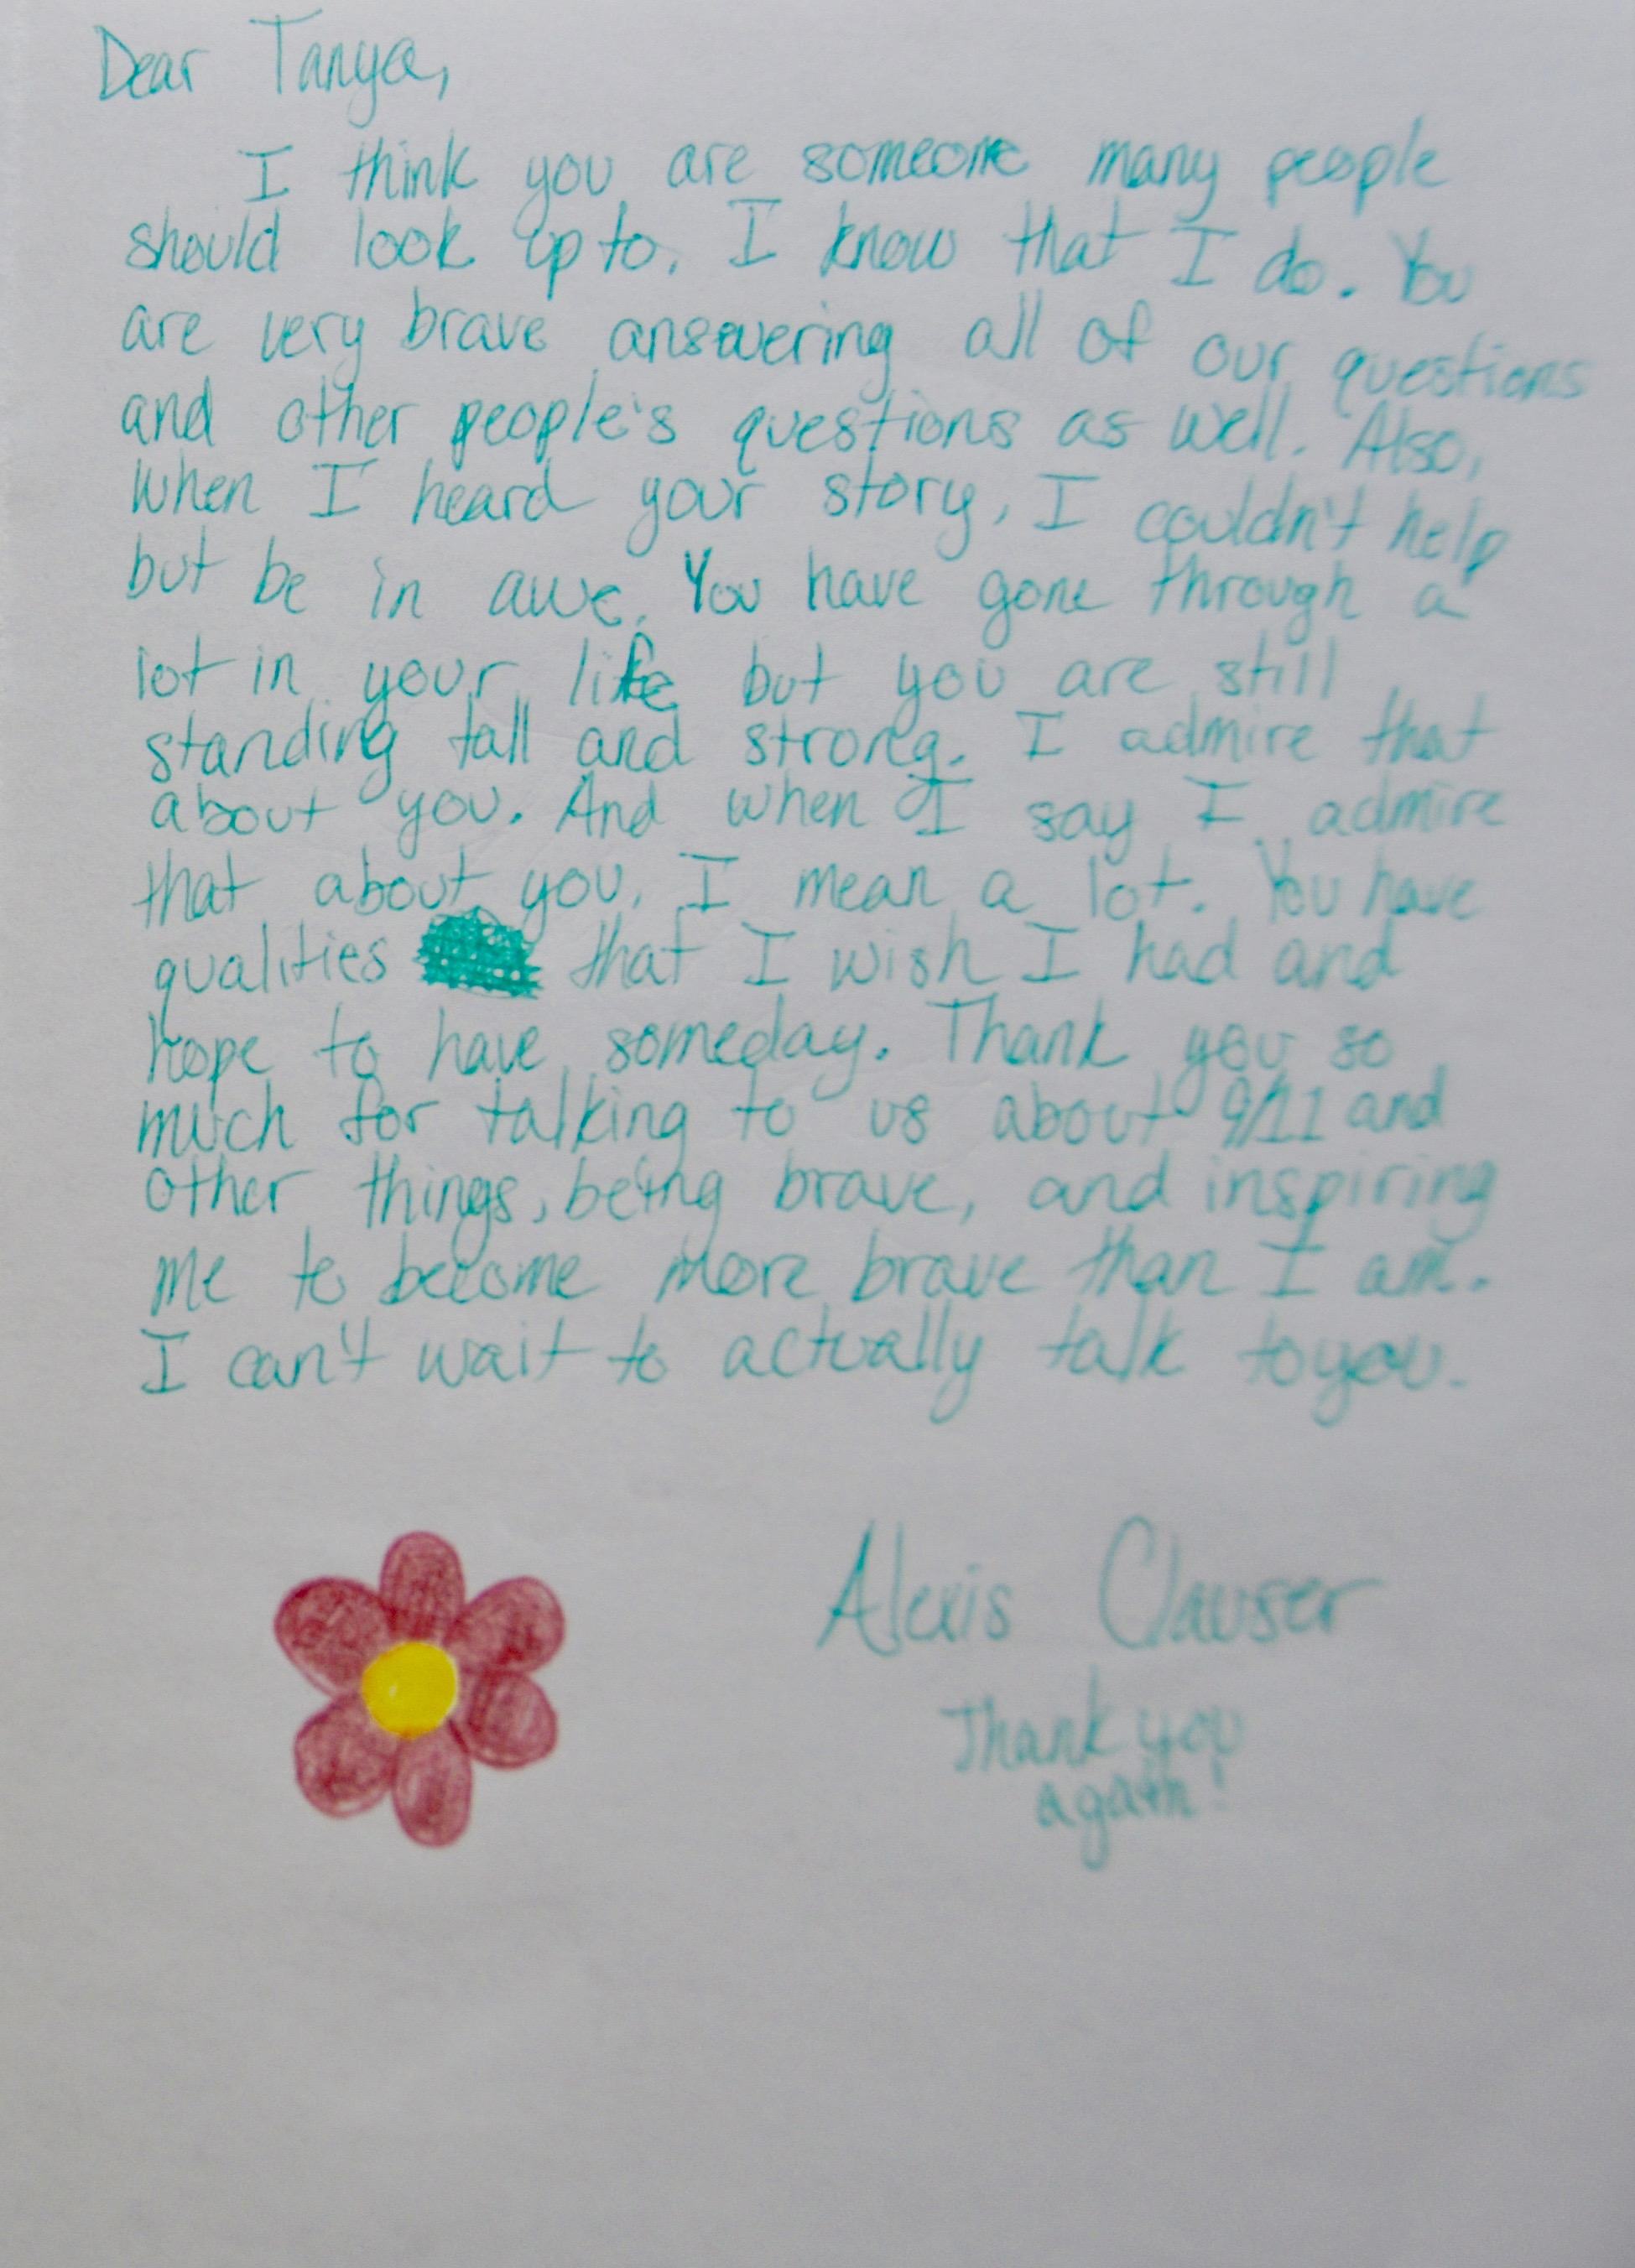 Dear Tanya,
I think you are someone many people
should look up to. I know that I do. You
are very brave answering all of our questions
and other people's questions as well. Also,
when I heard your story, I couldn't help
but be in awe. You have gone through a
lot in your life but you are still
standing tall and strong. I admire that
about you. And when I say I admire
that about you, I mean a lot. You have
qualities that I wish I had and
hope to have someday. Thank you so
much for talking to us about 9/11 and
other things, being brave, and inspiring
me to become more brave than I am.
I can't wait to actually talk to you.
Alexis Clauser
Thank you
again!